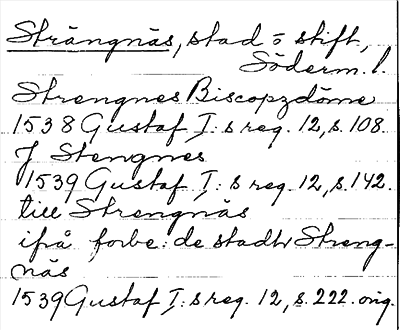 Strängnäs, stad o stift,
Söderm. l.
Strengnes Biscopzdöme
1538 Gustaf I:s reg. 12, s. 108.
J Stengnes
1539 Gustaf I:s reg. 12, s. 142.
till Strengnäs
ifrå förbe: de stadh Streng-
näs
1539 Gustaf I:s reg. 12, s. 222. orig.